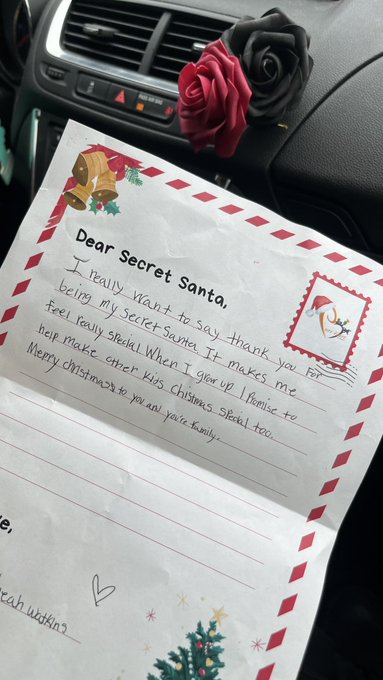 PASS AIR BAG
Dear Secret Santa,
I really want to say thank you for
being my Secret Santa. It makes me
feel really special. When I grow up I Promise to
help make other kids christmas special too.
Merry christmas to you and you're family.
e,
eah Watkins